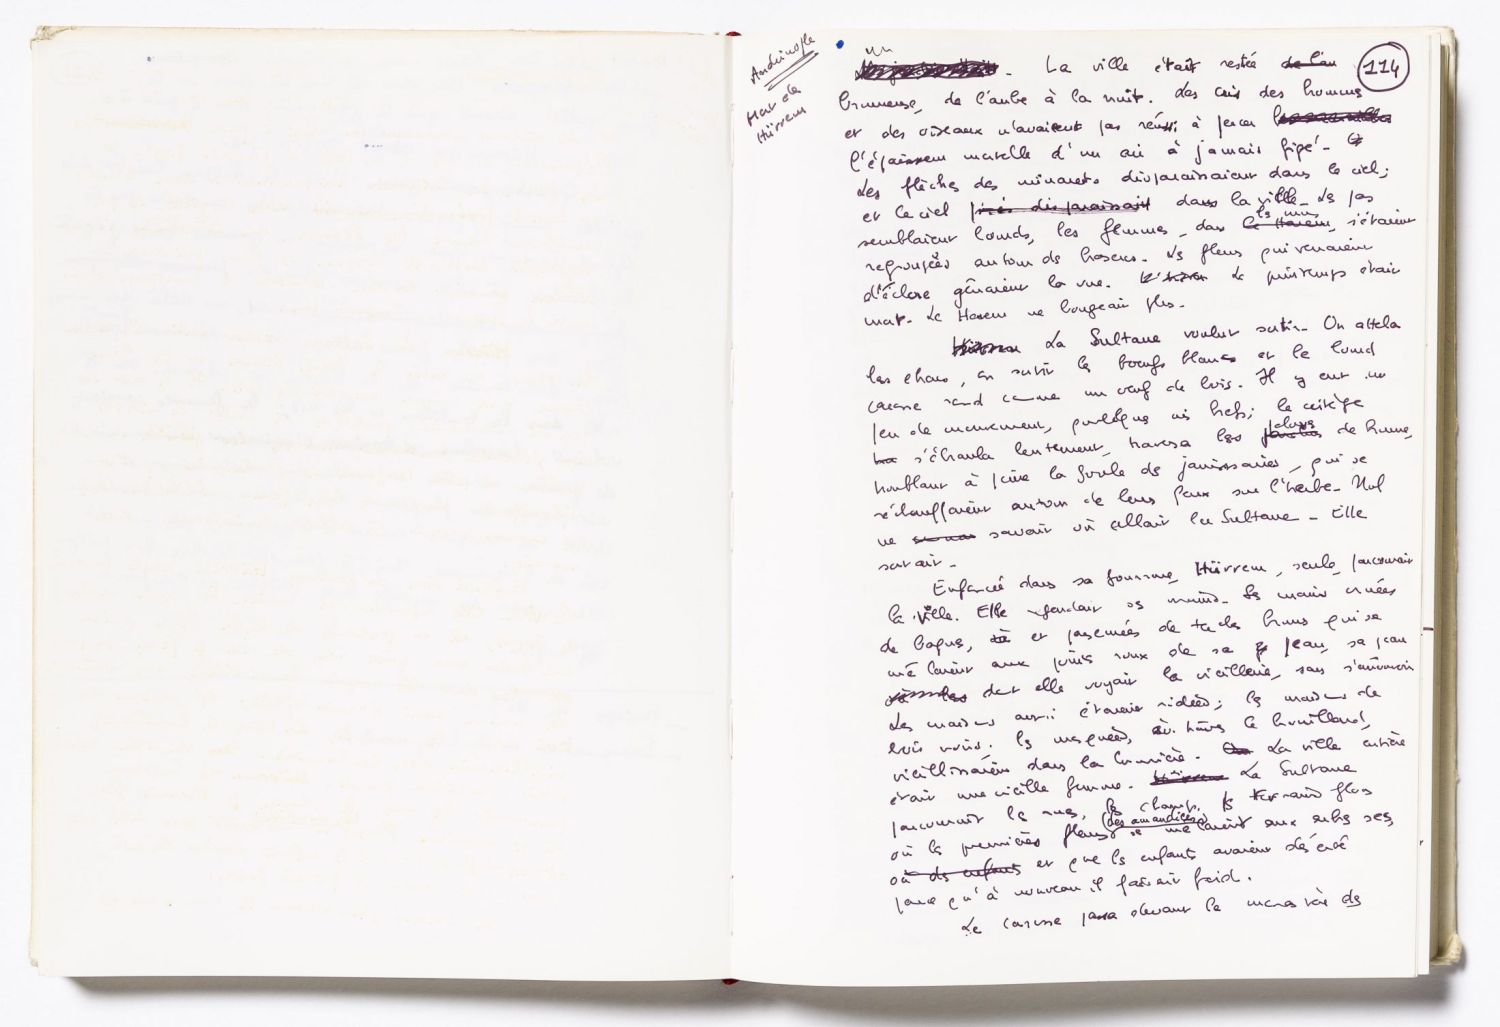 Andrinople
Mort de
Hürrem
un
114
La ville était restée de l'au
brumeuse, de l'aube à la nuit. Les cris des hommes
et des oiseaux n'avaient pas réussi à percer
l'épaisseur mutelle d'un air à jamais figé.
Les flèches des minarets disparaissaient dans le ciel;
et le ciel près disparaissait dans la ville. Les pas
les murs
semblaient lourds, les femmes, dans le Harem, s'étaient
regroupées autour des braseros. Les fleurs qui venaient
d'éclore gênaient la vue. Le printemps était
mort. Le Harem ne bougeait plus.
Hürrem La Sultane voulut sortir. On attela
les chars, on sortit les bœufs blancs et le lourd
carrosse rond comme un œuf de bois. Il y eut un
peu de mouvement, quelques cris brefs; le cortège
s'ébranla lentement, traversa les de brume,
troublant à peine la foule des janissaires, qui se
réchauffaient autour de leurs feux sur l'herbe. Nul
ne savait où allait la Sultane. Elle
savait.
Enfoncée dans sa fourrure, Hürrem, seule, parcourait
la ville. Elle regardait ses mains. Ses mains ornées
de bagues, et parsemées de taches brunes qui se
mêlaient aux points roux de sa peau, sa peau
dont elle voyait la vieillerie, sans s'émouvoir
Les maisons aussi étaient ridées; les maisons de
bois noirs. les mosquées, à travers le brouillard,
vieillissaient dans la lumière. La ville entière
était une vieille femme. Hürrem La Sultane
parcourait les rues, les champs, les terrains flous
(des amandiers)
où les premières fleurs se mêlaient aux arbres secs,
où des enfants et que les enfants avaient déserté
parce qu'à nouveau il faisait froid.
Le carrosse passa devant le monastère des